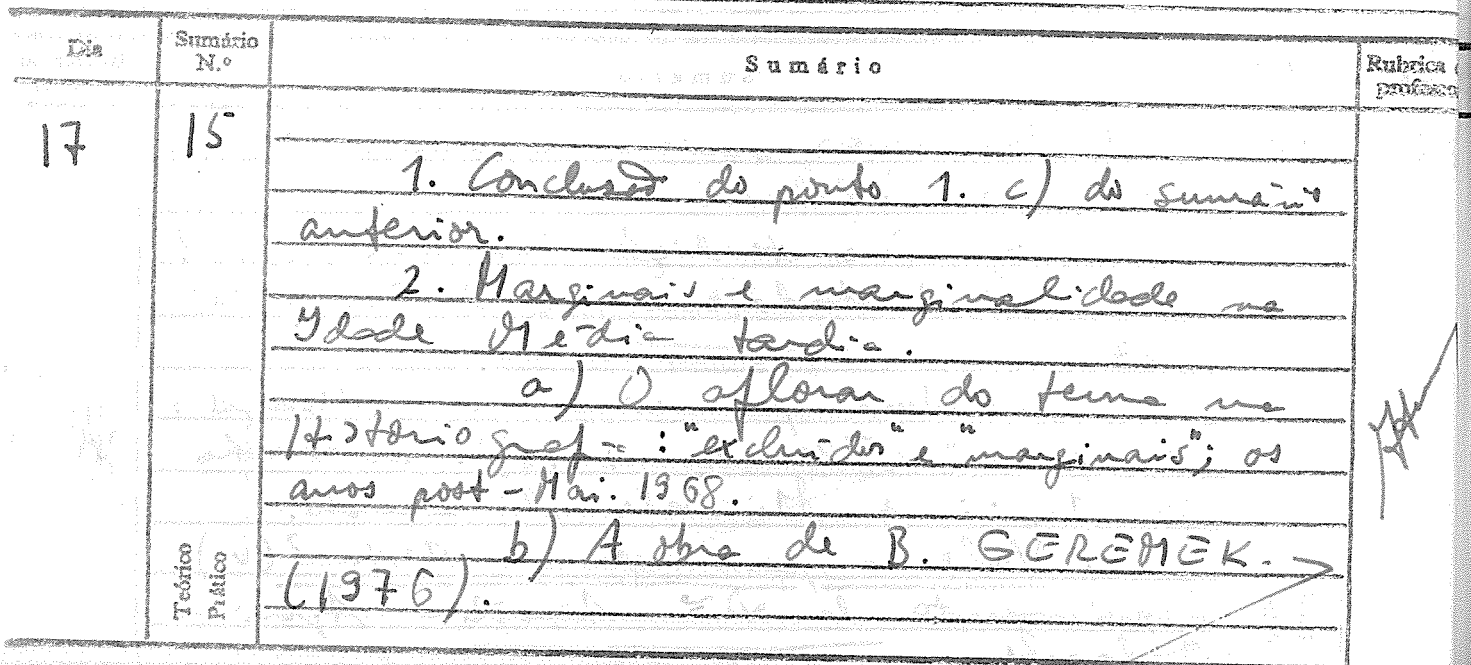 Dia Sumário N.º Sumário Rubrica professo
17 15
1. Conclusão do ponto 1. c) do sumário
anterior.
2. Marginais e marginalidade na
Idade Média tardia.
a) O aflorar do tema na
Historiografia: "excluídos" e "marginais"; os
anos post-Mai. 1968.
b) A obra de B. GEREMEK.
(1976).
Teórico
Prático